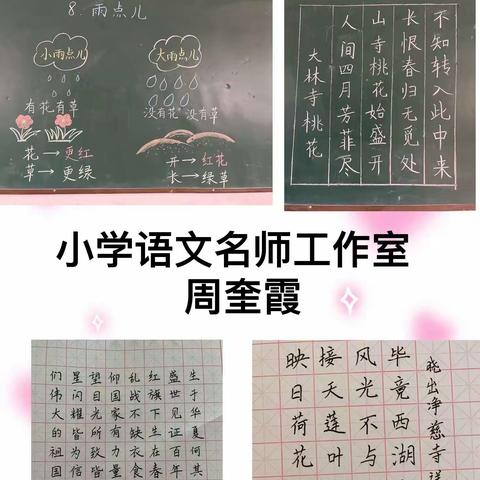 8. 雨点儿
小雨点儿
大雨点儿
有花有草
没有花 没有草
花→更红
草→更绿
开→红花
长→绿草
大林寺桃花
人间四月芳菲尽
山寺桃花始盛开
长恨春归无觅处
不知转入此中来
小学语文名师工作室
周奎霞
生于华夏何其
盛世见证百年
红旗下生在春
乱战不缺衣食
仰国家有力量
望目光所致皆
星闪耀皆为信
们伟大的祖国
晓出净慈寺送
毕竟西湖
风光不与
接天莲叶
映日荷花